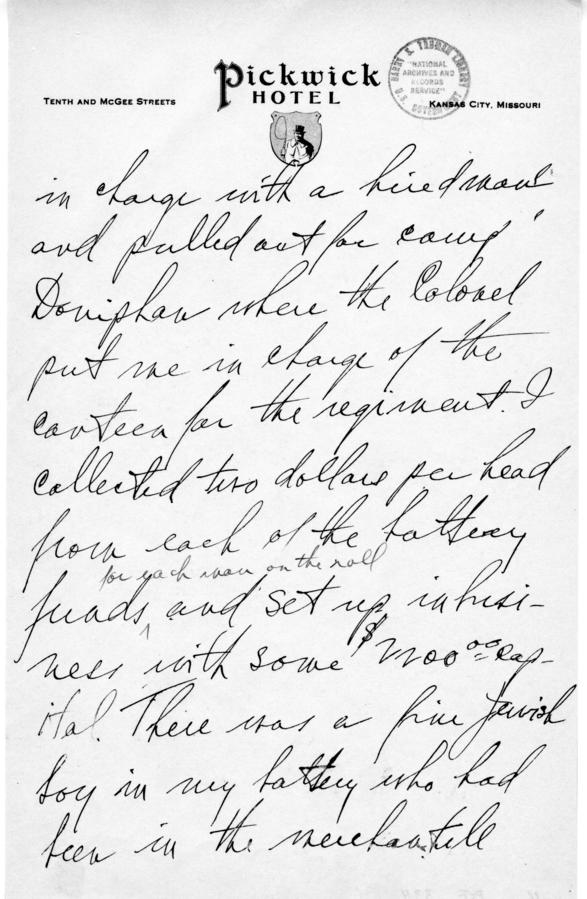 Pickwick
HOTEL
TENTH AND MCGEE STREETS
KANSAS CITY, MISSOURI
HARRY S. TRUMAN LIBRARY
"NATIONAL
ARCHIVES AND
RECORDS
SERVICE"
U.S. GOVERNMENT
in charge with a hired man
and pulled out for camp
Doniphan where the Colonel
put me in charge of the
canteen for the regiment. I
collected two dollars per head
from each of the battery
for each man on the roll
funds and set up in busi-
ness with some $2200.00 cap-
ital. There was a fine Jewish
boy in my battery who had
been in the merchantile